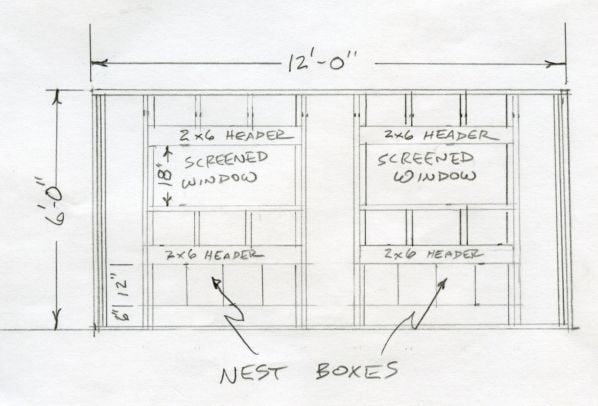 12'-0"
2x6 HEADER
2x6 HEADER
18"
SCREENED
WINDOW
SCREENED
WINDOW
6'-0"
2x6 HEADER
2x6 HEADER
6" 12"
NEST BOXES